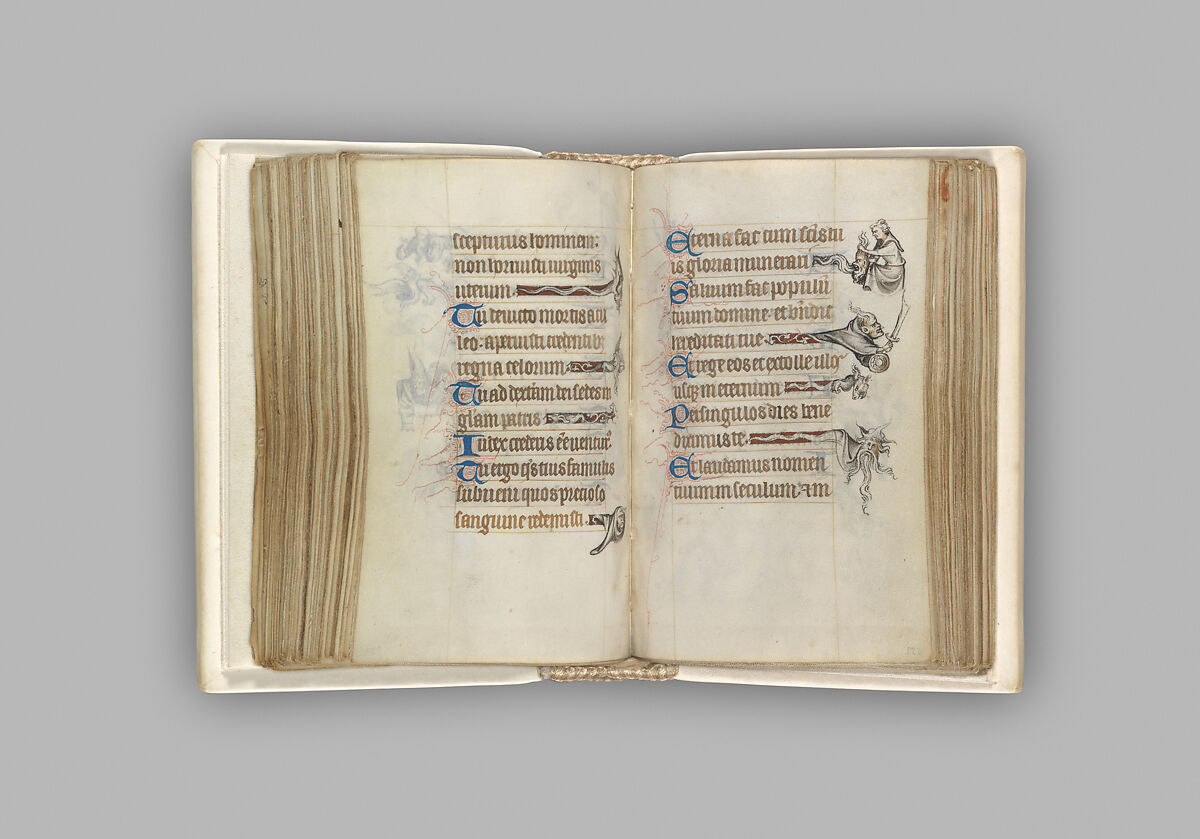 scepturus hominem:
non horruisti uirginis
uterum
Tu deuicto mortis acu
leo: aperuisti credentibꝫ
regna celorum
Tu ad dextam dei sedes in
glam patris
Iudex crederis ēē uenturꝰ
Tu ergo qs tuis famulis
subueni quos precioso
sanguine redemisti.
Eterna fac cum scīs tu
is gloria munerari
Saluum fac populū
tuum domine et bn̄dic
hereditati tue
Et rege eos et extolle illos
usqꝫ in eternum
Per singulos dies bene
dicimus te.
Et laudamus nomen
tuum in seculum. Am